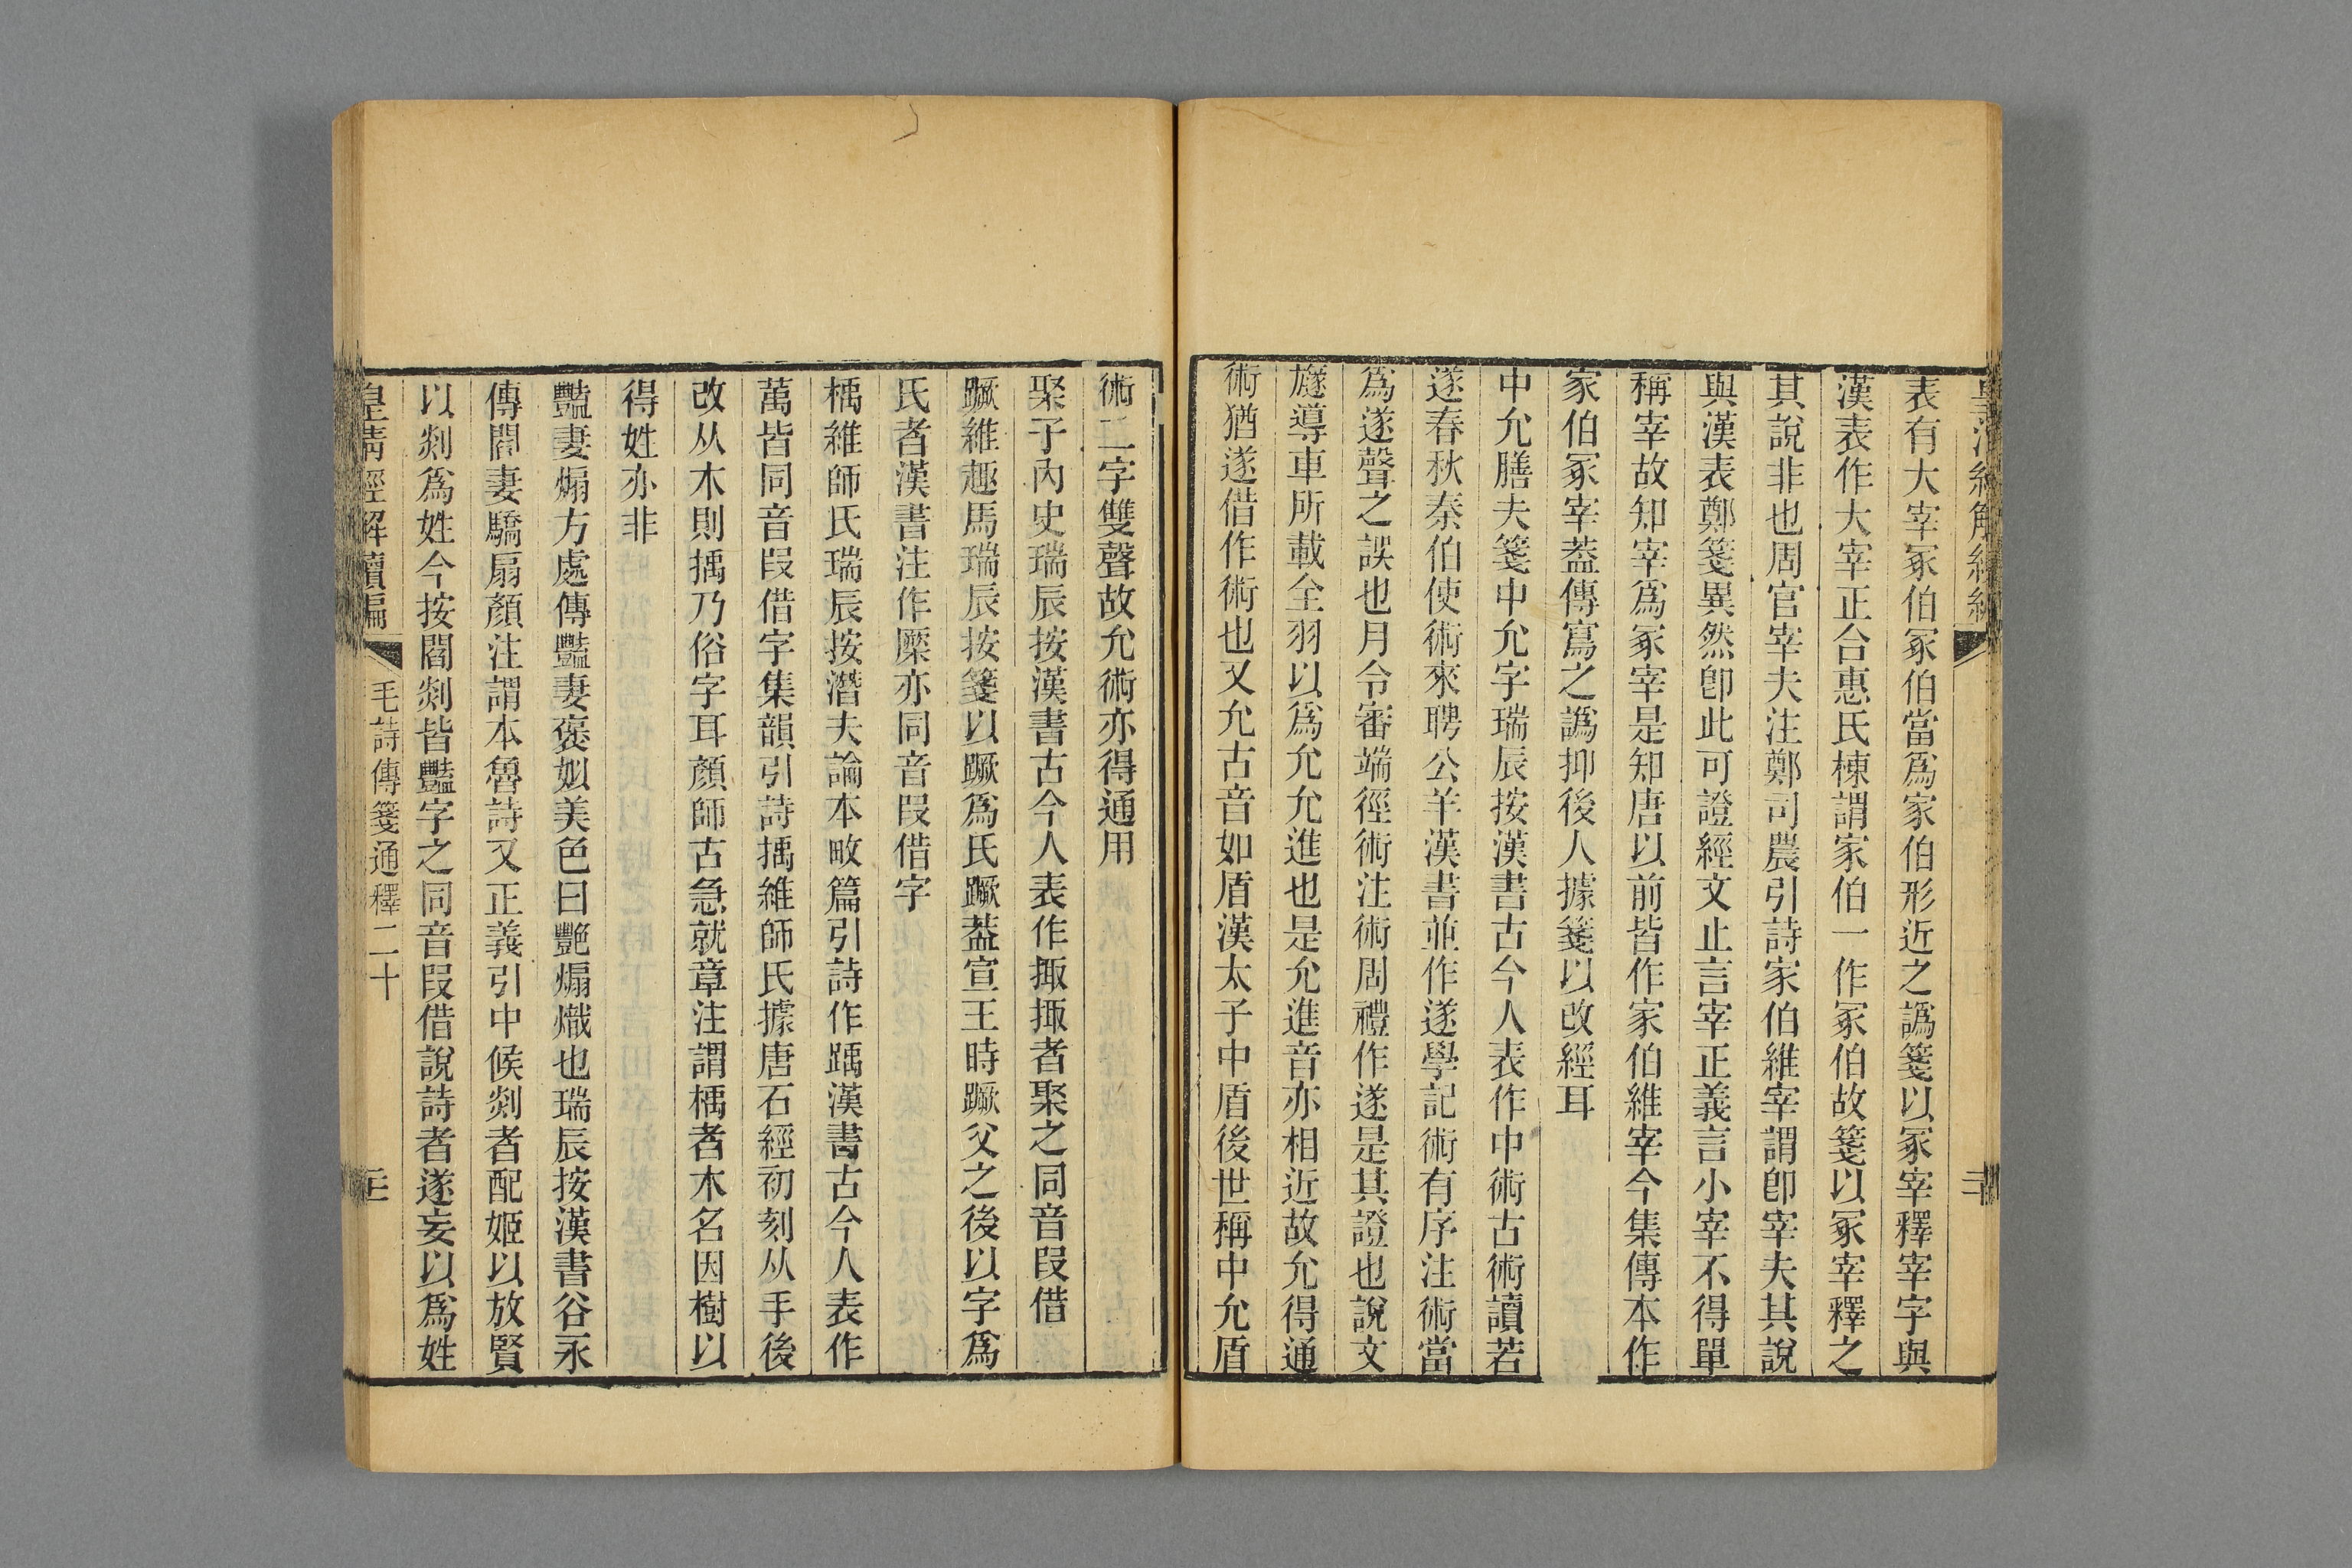 表有大宰冢伯冢伯當爲家伯形近之譌箋以冢宰釋宰字與
漢表作大宰正合惠氏棟謂家伯一作冢伯故箋以冢宰釋之
其說非也周官宰夫注鄭司農引詩家伯維宰謂卽宰夫其說
與漢表鄭箋異然卽此可證經文止言宰正義言小宰不得單
稱宰故知宰爲冢宰是知唐以前皆作家伯維宰今集傳本作
家伯冢宰葢傳寫之譌抑後人據箋以改經耳
中允膳夫箋中允字瑞辰按漢書古今人表作中術古術讀若
遂春秋秦伯使術來聘公羊漢書並作遂學記術有序注術當
爲遂聲之誤也月令審端徑術注術周禮作遂是其證也說文
旞導車所載全羽以爲允允進也是允進音亦相近故允得通
術猶遂借作術也又允古音如盾漢太子中盾後世稱中允盾
術二字雙聲故允術亦得通用
聚子內史瑞辰按漢書古今人表作掫掫者聚之同音叚借
蹶維趣馬瑞辰按箋以蹶爲氏蹶葢宣王時蹶父之後以字爲
氏者漢書注作橜亦同音叚借字
楀維師氏瑞辰按潛夫論本政篇引詩作踽漢書古今人表作
萬皆同音叚借字集韻引詩㩻維師氏據唐石經初刻从手後
改从木則㩻乃俗字耳顏師古急就章注謂楀者木名因樹以
得姓亦非
豔妻煽方處傳豔妻褒姒美色曰艷煽熾也瑞辰按漢書谷永
傳閻妻驕扇顏注謂本魯詩又正義引中候剡者配姬以放賢
以剡爲姓今按閻剡皆豔字之同音叚借說詩者遂妄以爲姓
皇清經解續編
毛詩傳箋通釋二十